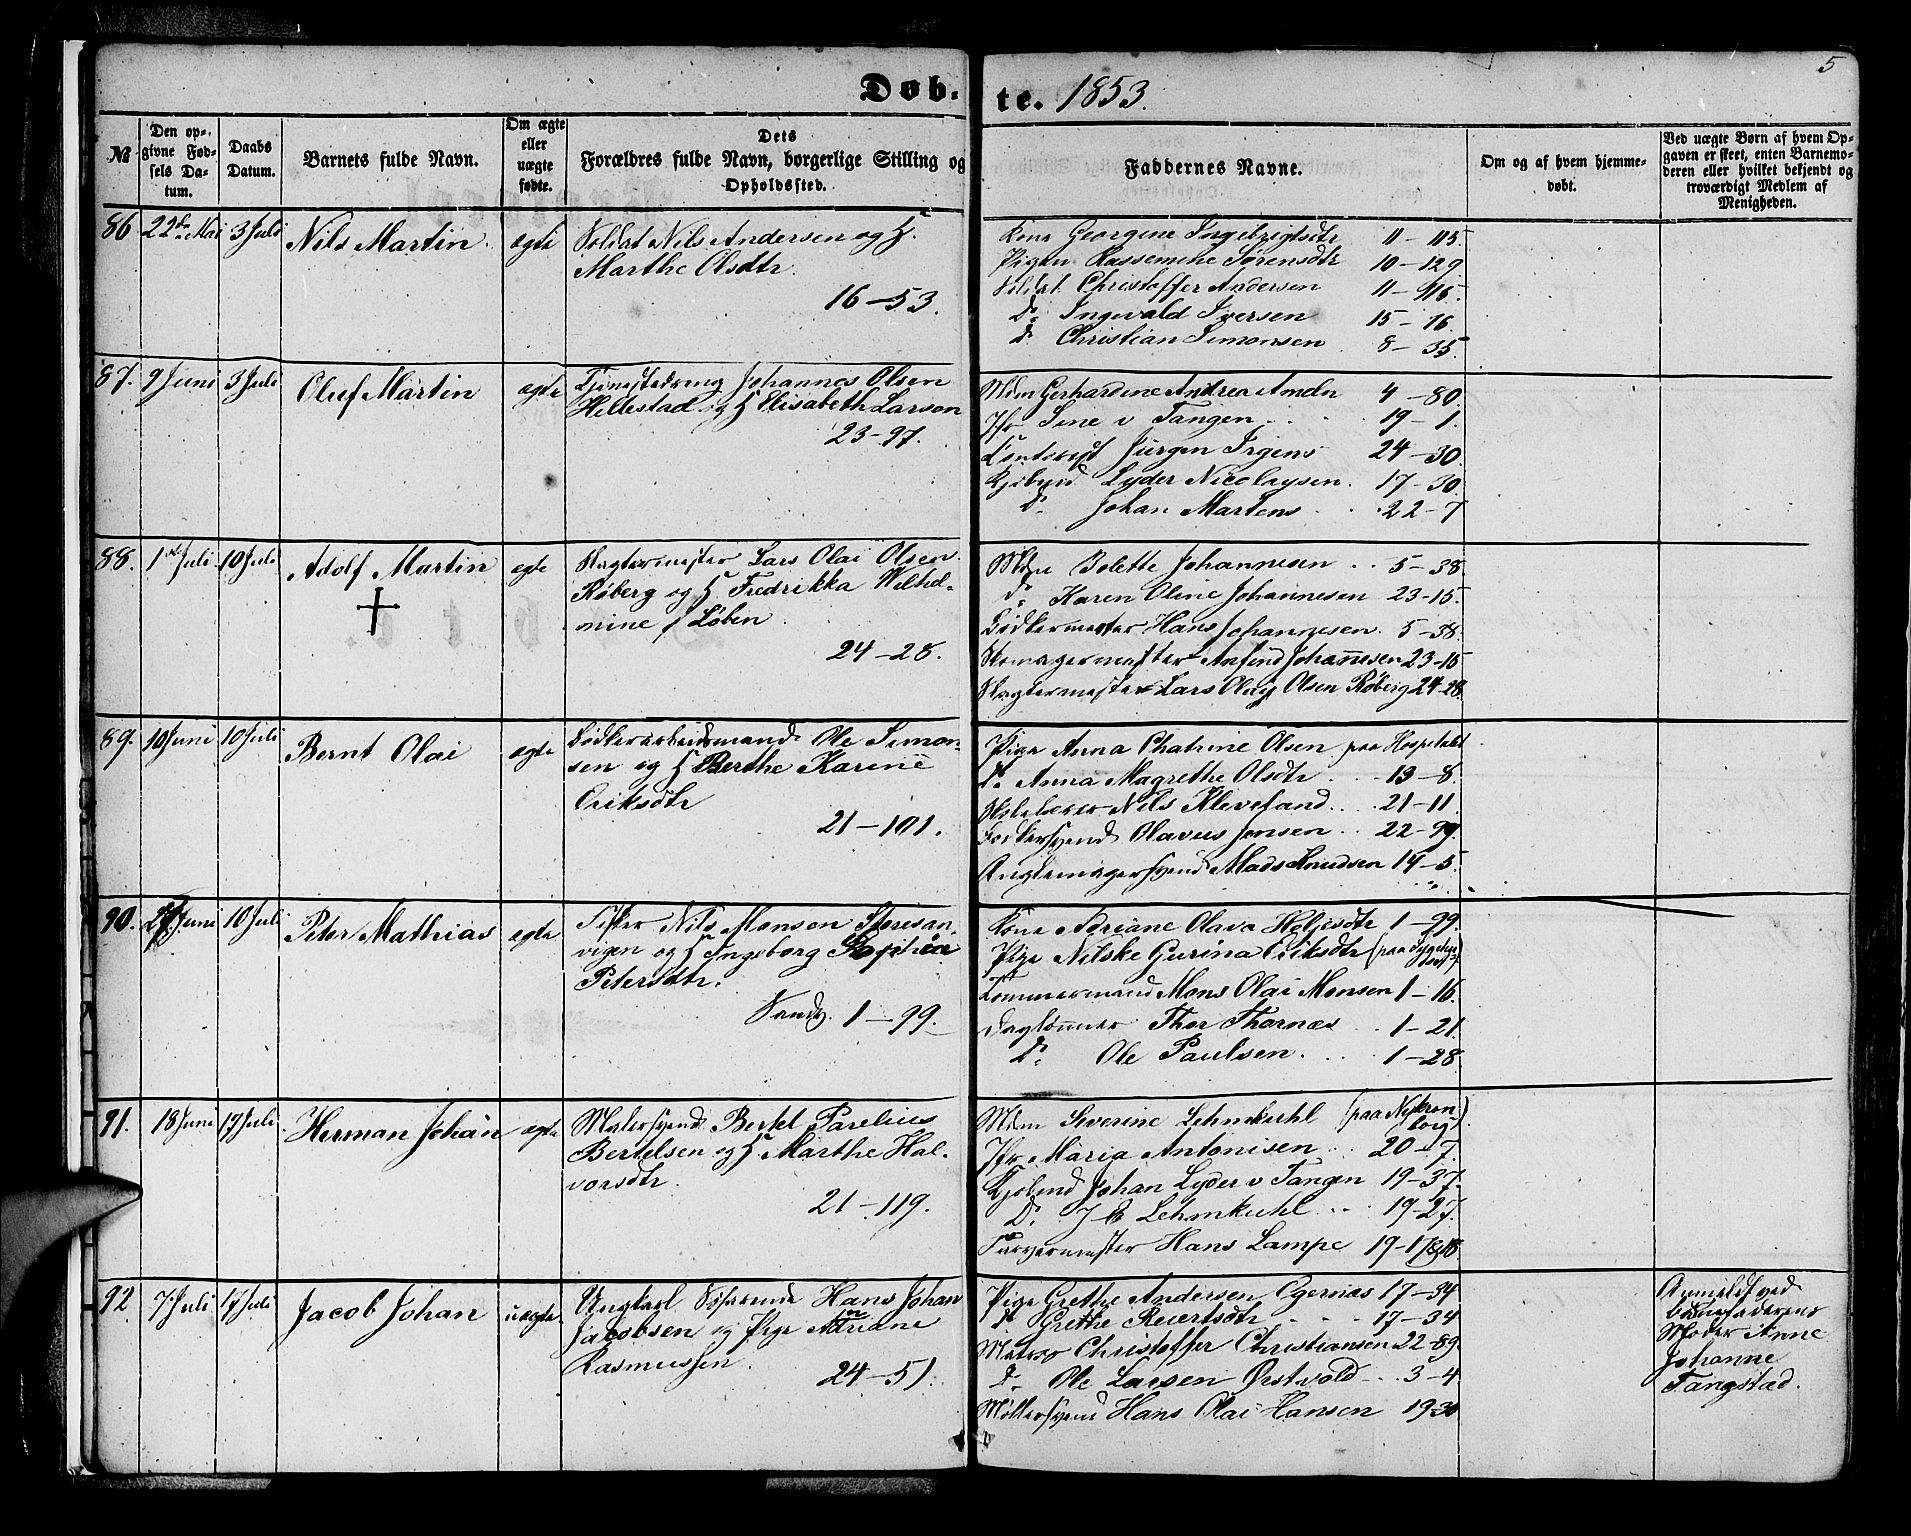 5
Døb- te. 1853.
№
Den opgivne Fødsels Datum.
Daabs Datum.
Barnets fulde Navn.
Om ægte eller uægte fødte.
Dets Forældres fulde Navn, borgerlige Stilling og Opholdssted.
Faddernes Navne.
Om og af hvem hjemmedøbt.
Ved uægte Børn af hvem Opgaven er skeet, enten Barnemoderen eller hvilket bekjendt og troværdigt Medlem af Menigheden.
86 22de Mai 3 Juli Nils Martin. ægte
Soldat Nils Andersen og H.
Marthe Olsdtr.
16–53.
Kone Georgine Ingebrigtsdtr 11–115.
Pigen Rassemine Sørensdtr 10–129
Soldat Christoffer Andersen 11–116.
Do Ingevald Iversen 15–76.
do Christian Simonsen 8–35.
87. 9 Juni 3 Juli Oluf Martin ægte
Tjenestedreng Johannes Olsen
Hillestad og H Elisabeth Larsen
23–97.
Mdm Gerhardine Andrea Amdn 4–80
Jfr Sine v Tangen 19–1.
Contorist Jürgen Irgens 24–30
Kjøbmd Lyder Nicolaysen. 17–30.
Do Johan Martens 22–7
88. 1ste Juli 10 Juli Adolf Martin ægte
Slagtermester Lars Olai Olsen
Røberg og H Fredrikka Wilhel-
mine f Løben
24–28.
Mdm Bolette Johannesen 5–38.
Do Karen Oline Johannesen 23–15.
Bødkermester Hans Johannesen. 5–38.
Skomagermester Anfind Johannesen 23–15
Slagtermester Lars Olay Olsen Røberg 24–28.
89. 10 Juni 10 Juli Bernt Olai ægte
Bødkerarbeidsmand Ole Simon-
sen og H Berthe Karine
Eriksdtr
21–101.
Pige Anna Chatrine Olsen paa Hospitalet
Do Anna Magrethe Olsdtr 13–8.
Skolelærer Nils Klevesand 21–11.
Bødkersvend Olavus Jensen 22–99.
Mads Knudsen 14–5
90. 27 Juni 10 Juli Peter Mathias ægte
Fisker Nils Monsen Storesan-
vigen og H Ingeborg Sophia
Petersdtr.
Sandv. 1–99.
Kone Adriane Olava Heljesdtr 1–99.
Pige Nilske Gurina Eriksdtr (paa Sygehuset)
Tømmermand Mons Olai Monsen 1–16.
Daglønner Thor Thornæs 1–21.
Do Ole Paulsen 1–28.
91. 18 Juni 17 Juli. Herman Johan ægte
Malersvend Bertel Parelius
Bertelsen og H Marthe Hal-
vorsdtr.
21–119.
Mdm Severine Lehmkuhl (paa Nykron
borg)
Jfr Maria Antonisen 20–7.
Kjøbmd Johan Lyder v Tangen 19–37.
Do J E Lehmkuhl 19–27.
Farvermester Hans Lampe 19–17&18
92 7 Juli 17 Juli Jacob Johan uægte
Ungkarl Søfarende Hans Johan
Jacobsen og Pige Mariane
Rasmussen.
24–51.
Pige Grethe Andersen Egernæs 17–34
Do Grethe Reiertsdtr 17–34
Matros Christoffer Christiansen 22–89.
Do Ole Larsen Ørstvold 3–4
Møllersvend Hans Olai Hansen 19–30
Anmeldt ved
Barnefaderens
Moder Anne
Johanne
Tangstad.